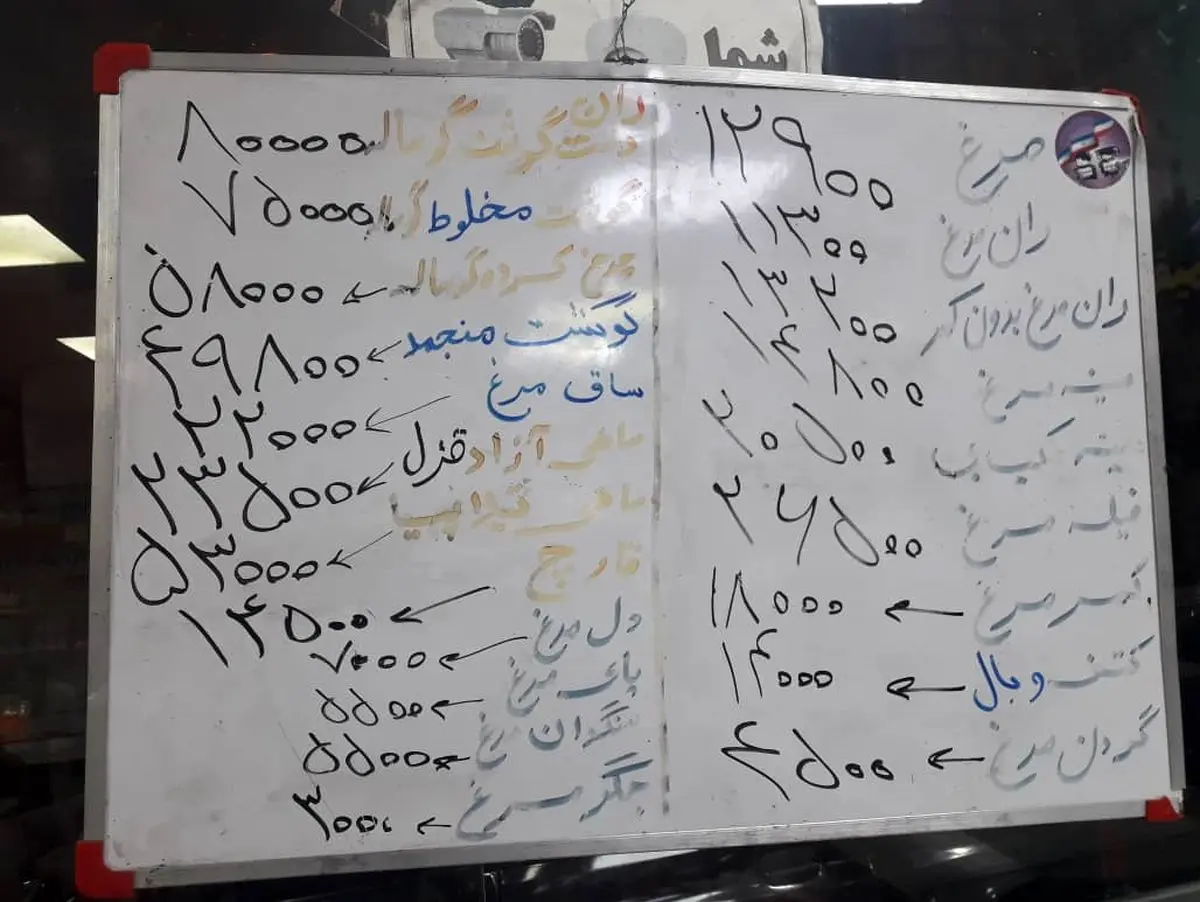 شما
مرغ ۱۲۹۰۰
ران مرغ ۱۱۳۰۰
ران مرغ بدون کمر ۱۳۲۰۰
سینه مرغ ۱۴۸۰۰
سینه کبابی ۲۰۵۰۰
فیله مرغ ۲۶۵۰۰
مرغ ← ۱۸۰۰۰
کتف و بال ← ۱۴۰۰۰
گردن مرغ ← ۴۵۰۰
ران
دست گوشت گوساله ۸۰۰۰۰
گوشت مخلوط ۷۵۰۰۰
چرخ کرده گوساله ← ۵۸۰۰۰
گوشت منجمد ← ۴۹۸۰۰
ساق مرغ ← ۲۲۰۰۰
ماهی آزاد قزل ← ۲۳۵۰۰
ماهی تیلاپیا ← ۵۳۰۰۰
قارچ ← ۱۴۵۰۰
دل مرغ ← ۷۰۰۰
پای مرغ ← ۵۵۰۰
سنگدان مرغ ← ۵۵۰۰
جگر مرغ ← ۳۰۰۰